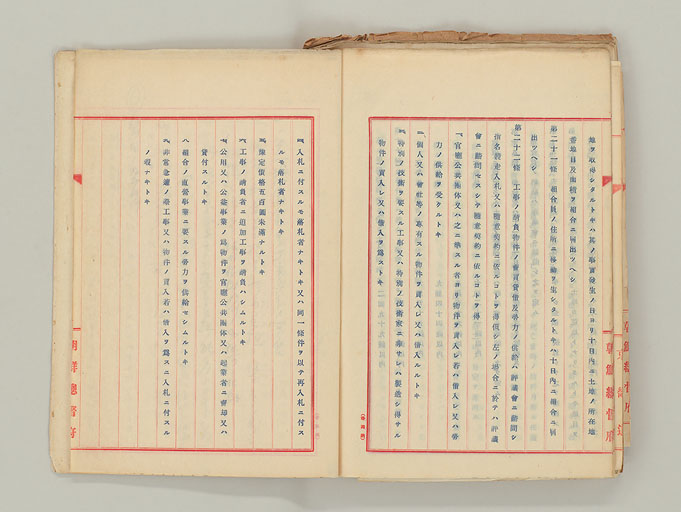 地ヲ取得シタルトキハ其ノ事實發生ノ日ヨリ十日內ニ土地ノ所在地
番地目及面積ヲ組合ニ屆出ツヘシ
第二十一條 組合員ノ住所ニ移動ヲ生シタルトキハ十日內ニ組合ニ屆
出ツヘシ
第二十二條 工事ノ請負物件ノ賣買貸借及勞力ノ供給ハ評議會ニ諮問シ
指名競走入札又ハ隨意契約ニ依ルコトヲ得但シ左ノ場合ニ於テハ評議
會ニ諮問セスシテ隨意契約ニ依ルコトヲ得
一、官廳公共團體又ハ之ニ準スル者ヨリ物件ヲ買入レ若ハ借入シ又ハ勞
力ノ供給ヲ受クルトキ
二、個人又ハ會社等ノ專有スル物件ヲ買入レ又ハ借入ルルトキ
三、特別ノ技術ヲ要スル工事又ハ特別ノ技術家ニ非サレハ製造シ得サル
物件ノ買入レ又ハ借入ヲ爲ストキ
四、入札ニ付スルモ落札者ナキトキ又ハ同一條件ヲ以テ再入札ニ付ス
ルモ落札者ナキトキ
五、豫定價格五百圓未滿ナルトキ
六、工事ノ請負者ニ追加工事ヲ請負ハシムルトキ
七、公用又ハ公益事業ノ爲物件ヲ官廳公共團體又ハ起業者ニ賣却又ハ
貸付スルトキ
八、組合ノ直營事業ニ要スル勞力ヲ供給セシムルトキ
九、非常急遽ノ際工事又ハ物件ノ買入若ハ借入ヲ爲スニ入札ニ付スル
ノ暇ナキトキ
朝鮮總督府
朝鮮總督府